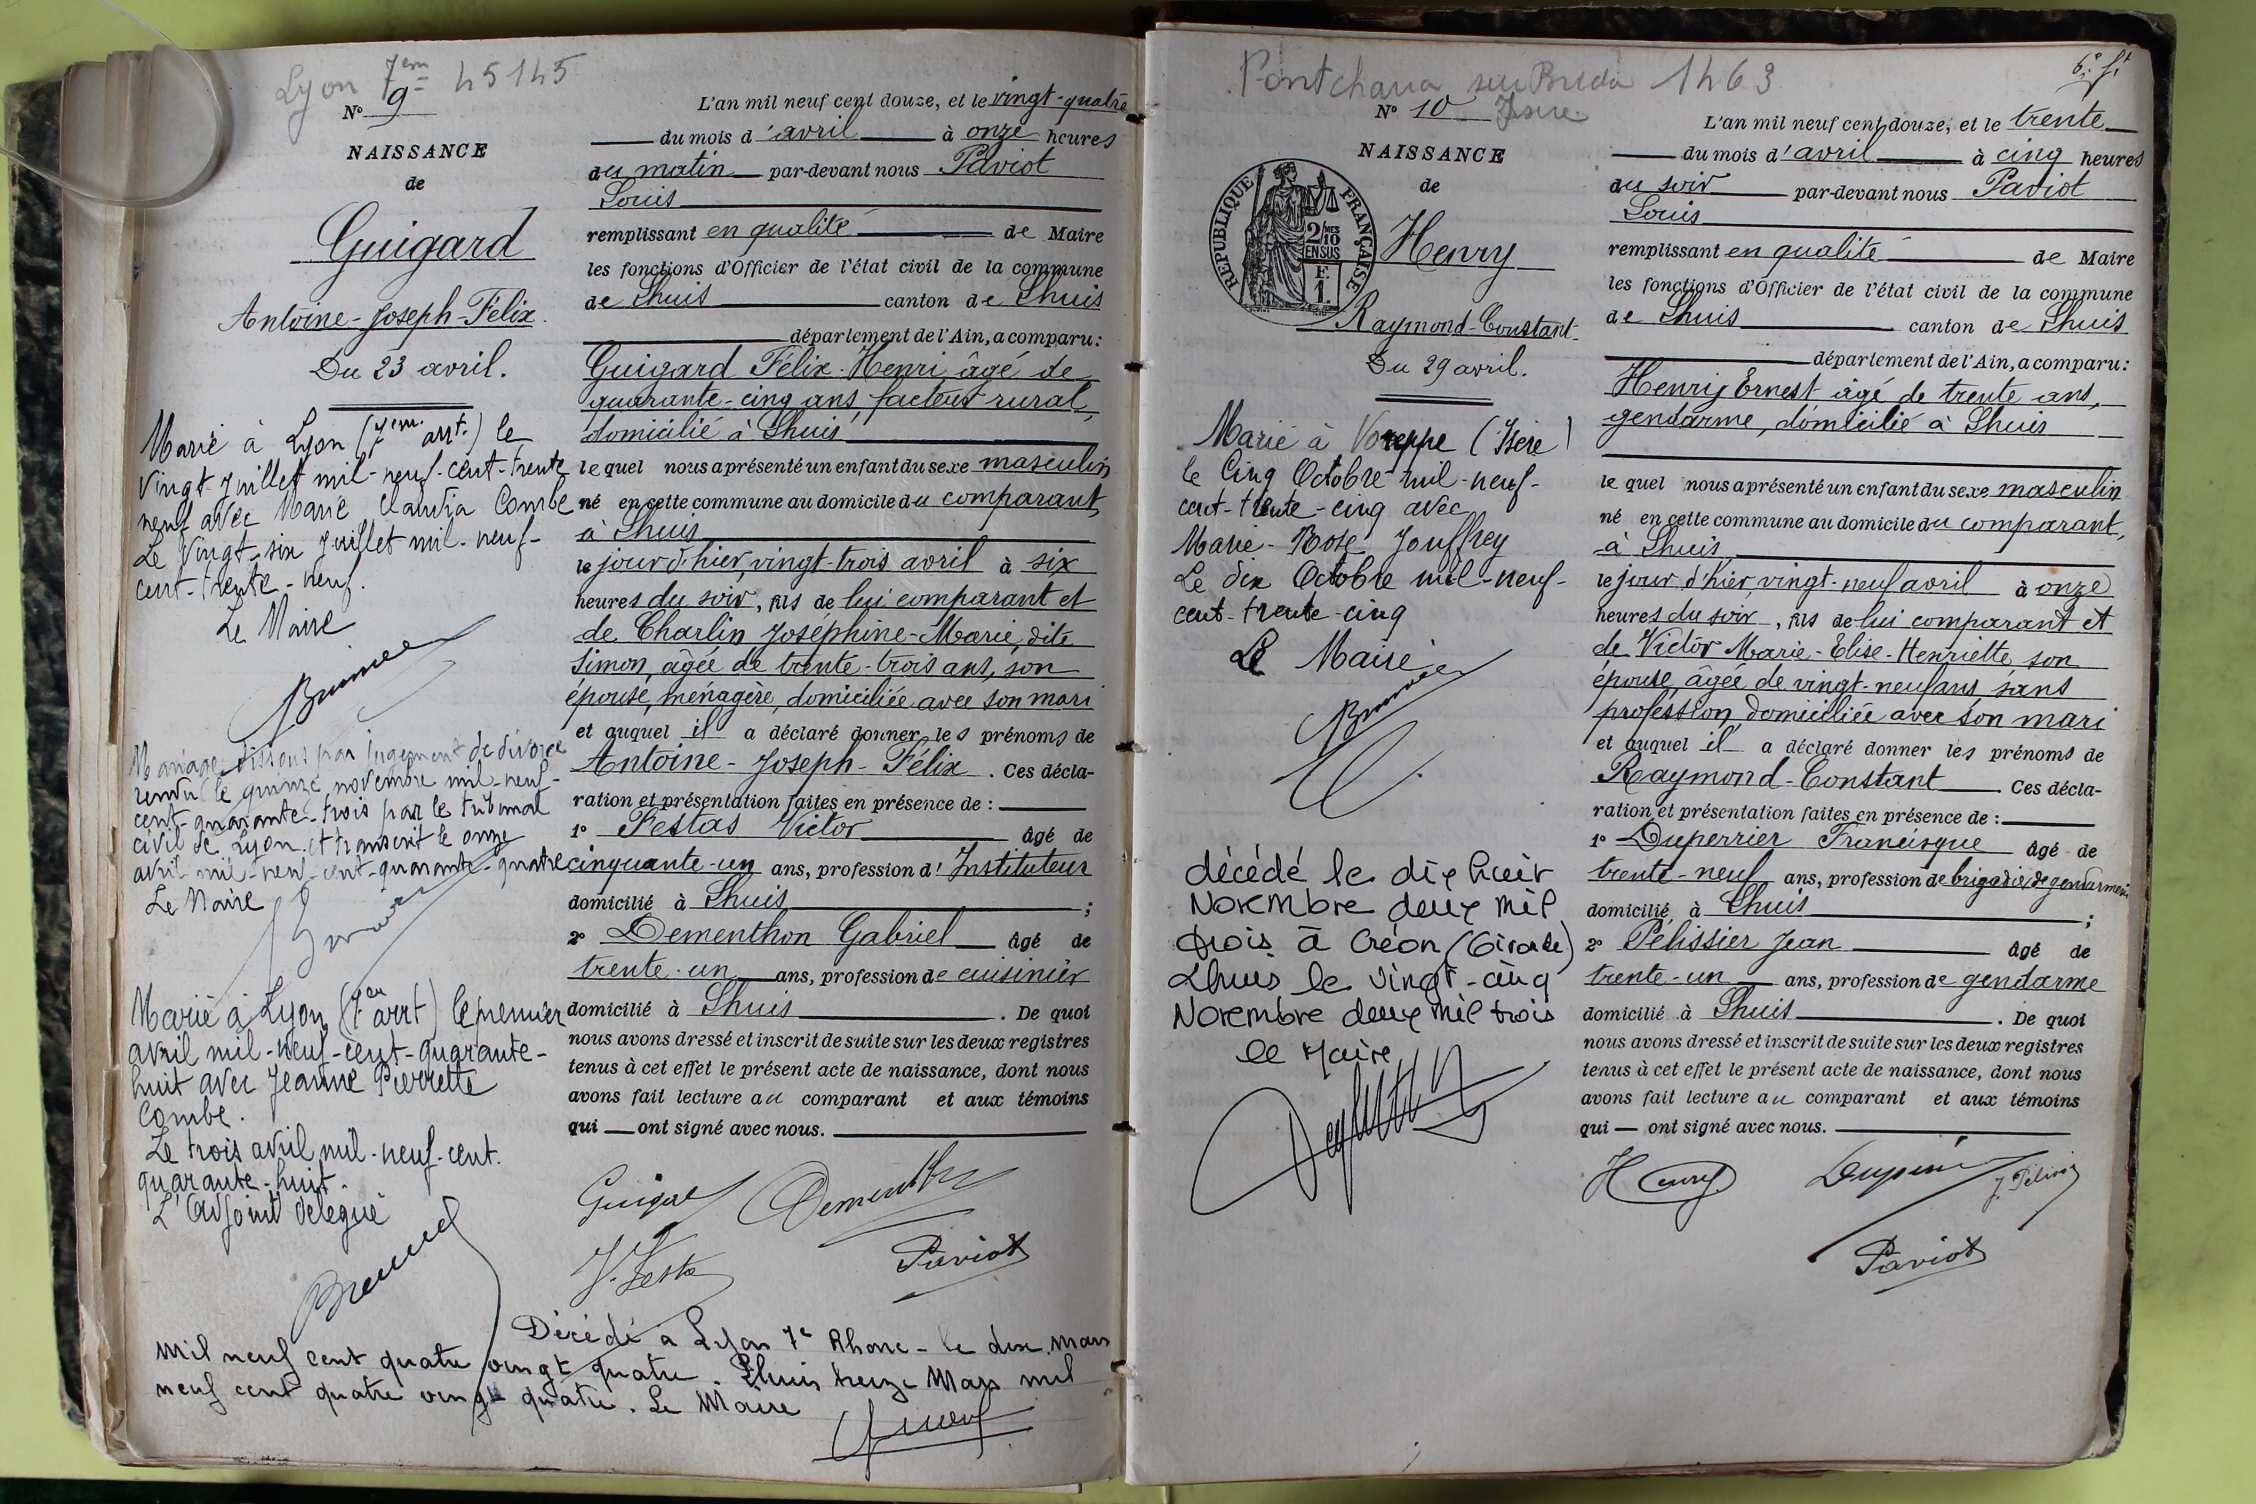 Lyon 7em 45145
N° 9
NAISSANCE
de
Guigard
Antoine-Joseph-Félix.
Du 23 avril.
Marié à Lyon (7em arrt.) le
vingt juillet mil-neuf-cent-trente
neuf avec Marie Claudia Combe
Le vingt-six juillet mil-neuf-
cent-trente-neuf.
Le Maire
Mariage dissous par jugement de divorce
rendu le quinze novembre mil-neuf-
cent-quarante-trois par le tribunal
civil de Lyon et transcrit le onze
avril mil-neuf-cent-quarante-quatre
Le Maire
Marié à Lyon (7em arrt) le premier
avril mil-neuf-cent-quarante-
huit avec Jeanne Pierrette
Combe.
Le trois avril mil-neuf-cent.
quarante-huit.
L'adjoint délégué
L'an mil neuf cent douze, et le vingt-quatre
du mois d'avril à onze heures
du matin par-devant nous Paviot
Louis
remplissant en qualité de Maire
les fonctions d'Officier de l'état civil de la commune
de Lhuis canton de Lhuis
département de l'Ain, a comparu:
Guigard Félix-Henri âgé de
quarante-cinq ans, facteur rural,
domicilié à Lhuis
lequel nous a présenté un enfant du sexe masculin
né en cette commune au domicile du comparant,
à Lhuis
le jour d'hier, vingt-trois avril à six
heures du soir, fils de lui comparant et
de Charlin Joséphine-Marie, dite
Simon, âgée de trente-trois ans, son
épouse, ménagère, domiciliée avec son mari
et auquel il a déclaré donner les prénoms de
Antoine-Joseph-Félix. Ces décla-
ration et présentation faites en présence de :
1° Festas Victor âgé de
cinquante-un ans, profession d'Instituteur
domicilié à Lhuis ;
2° Dementhon Gabriel âgé de
trente-un ans, profession de cuisinier
domicilié à Lhuis. De quoi
nous avons dressé et inscrit de suite sur les deux registres
tenus à cet effet le présent acte de naissance, dont nous
avons fait lecture au comparant et aux témoins
qui ont signé avec nous.
Guigard Dementhon
V. Festas Paviot
Décédé à Lyon 7e Rhône - le dix mars
mil neuf cent quatre vingt quatre. Lhuis treize Mars mil
neuf cent quatre vingt quatre. Le Maire
Pontcharra sur Breda 1463
Isère
6e ft
N° 10
NAISSANCE
de
REPUBLIQUE FRANÇAISE
2/10 MES
EN SUS
F.
1.
Henry
Raymond-Constant-
Du 29 avril.
Marié à Voreppe (Isère)
le Cinq Octobre mil-neuf-
cent-trente-cinq avec
Marie-Rose Jouffrey
Le dix Octobre mil-neuf-
cent-trente-cinq
Le Maire
décédé le dix huit
Novembre deux mil
trois à Créon (Gironde)
Lhuis le vingt-cinq
Novembre deux mil trois
le Maire
L'an mil neuf cent douze, et le trente
du mois d'avril à cinq heures
du soir par-devant nous Paviot
Louis
remplissant en qualité de Maire
les fonctions d'Officier de l'état civil de la commune
de Lhuis canton de Lhuis
département de l'Ain, a comparu:
Henry Ernest âgé de trente ans,
gendarme, domicilié à Lhuis
lequel nous a présenté un enfant du sexe masculin
né en cette commune au domicile du comparant,
à Lhuis
le jour d'hier, vingt-neuf avril à onze
heures du soir, fils de lui comparant et
de Victor Marie-Elise-Henriette, son
épouse, âgée de vingt-neuf ans, sans
profession, domiciliée avec son mari
et auquel il a déclaré donner les prénoms de
Raymond-Constant. Ces décla-
ration et présentation faites en présence de :
1° Duperrier Francisque âgé de
trente-neuf ans, profession de brigadier de gendarmerie
domicilié à Lhuis ;
2° Pélissier Jean âgé de
trente-un ans, profession de gendarme
domicilié à Lhuis. De quoi
nous avons dressé et inscrit de suite sur les deux registres
tenus à cet effet le présent acte de naissance, dont nous
avons fait lecture au comparant et aux témoins
qui ont signé avec nous.
Henry Duperrier J. Pélissier
Paviot